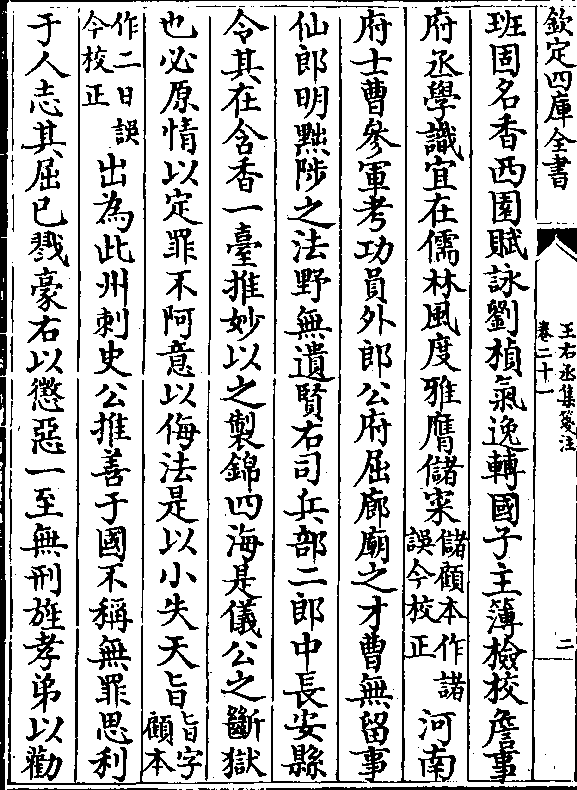 欽定四庫全書
王右丞集箋注
卷二十一
二
班固名香西園賦詠劉楨氣逸轉國子主簿檢校詹事
府丞學識宜在儒林風度雅膺儲寀儲顧本作諸誤今校正河南
府士曹參軍考功員外郎公府屈廊廟之才曹無留事
仙郎明黜陟之法野無遺賢右司兵部二郎中長安縣
令其在含香一臺推妙以之製錦四海是儀公之斷獄
也必原情以定罪不阿意以侮法是以小失天旨旨字顧本
作二日誤今校正出為此州刺史公推善于國不稱無罪思利
于人志其屈已戮豪右以懲惡一至無刑旌孝弟以勸